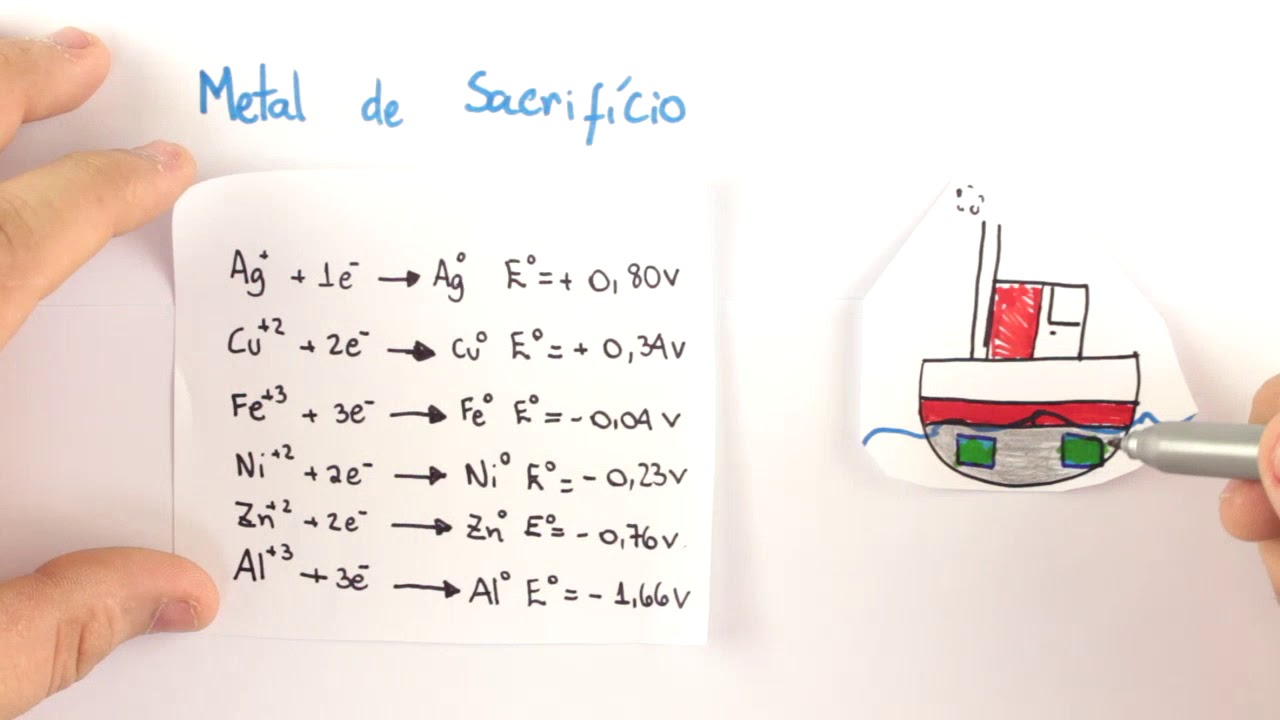 Metal de Sacrifício
Ag⁺ + 1e⁻ → Ag⁰ E⁰=+ 0,80v
Cu⁺² + 2e⁻ → Cu⁰ E⁰ = + 0,34v
Fe⁺³ + 3e⁻ → Fe⁰ E⁰ = - 0,04 v
Ni⁺² + 2e⁻ → Ni⁰ E⁰ = - 0,23v
Zn⁺² + 2e⁻ → Zn⁰ E⁰= - 0,76v.
Al⁺³ + 3e⁻ → Al⁰ E⁰ = - 1,66v